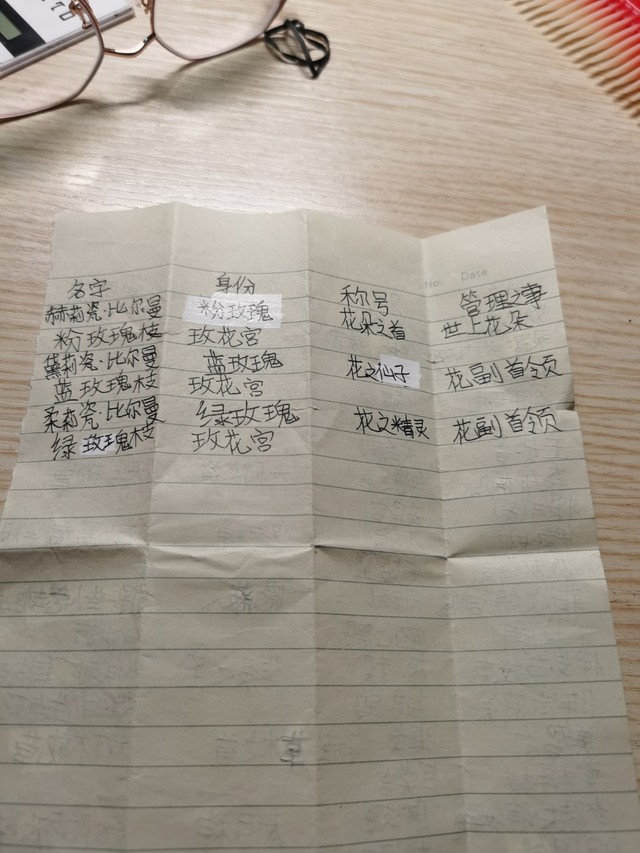 No. Date
名字 身份 称号 管理之事
赫莉瓷·比尔曼 粉玫瑰 花朵之首 世上花朵
粉玫瑰枝 玫花宫
黛莉瓷·比尔曼 蓝玫瑰 花之仙子 花副首领
蓝玫瑰枝 玫花宫
柔莉瓷·比尔曼 绿玫瑰 花之精灵 花副首领
绿玫瑰枝 玫花宫